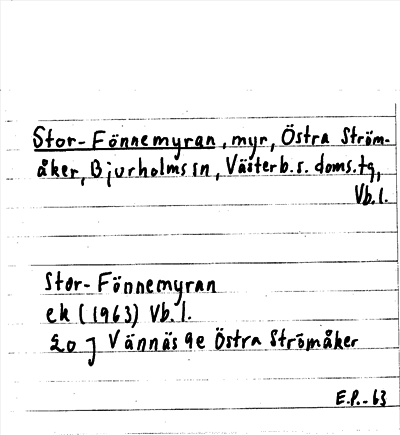 Stor-Fönnemyran, myr, Östra Ström-
åker, Bjurholms sn, Västerb.s. doms.tg,
Vb.l.
Stor-Fönnemyran
ek (1963) Vb.l.
20 J Vännäs 9e Östra Strömåker
E.P.-63